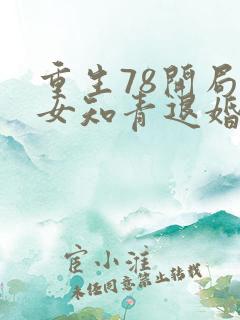 重生78開局
女知青退婚
宦小淮
未经同意禁止转载